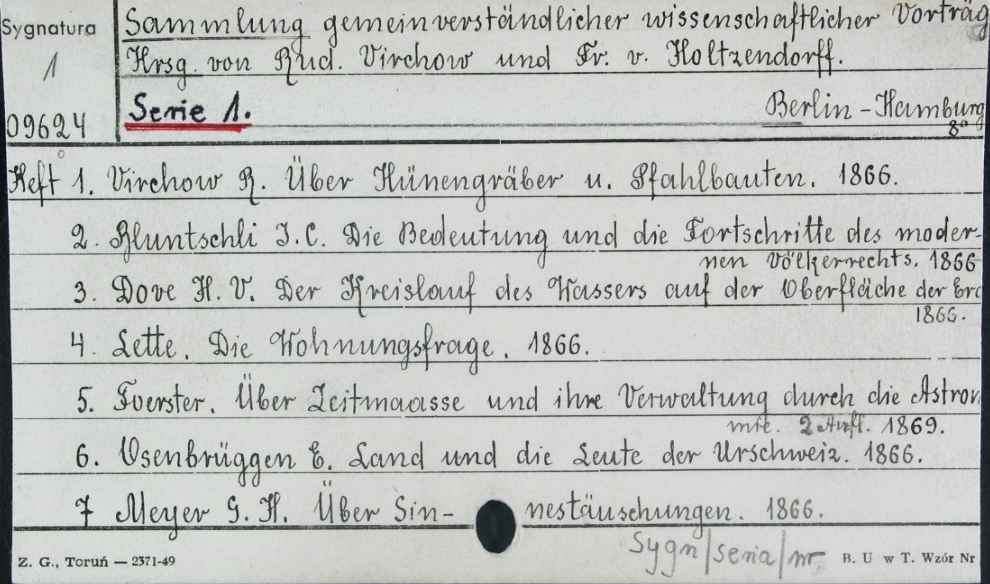 Sygnatura
Sammlung gemeinverständlicher wissenschaftlicher Vorträg
1
Hrsg. von Rud. Virchow und Fr. v. Holtzendorff.
09624
Serie 1.
Berlin - Hamburg
8°
Heft 1. Virchow R. Über Hünengräber u. Pfahlbauten. 1866.
2. Bluntschli J.C. Die Bedeutung und die Fortschritte des moder-
nen Völkerrechts. 1866
3. Dove H. V. Der Kreislauf des Wassers auf der Oberfläche der Erd
1866.
4. Lette. Die Wohnungsfrage. 1866.
5. Foerster. Über Zeitmaasse und ihre Verwaltung durch die Astron
mie. 2 Aufl. 1869.
6. Osenbrüggen E. Land und die Leute der Urschweiz. 1866.
7 Meyer G. H. Über Sin- nestäuschungen. 1866.
Sygn/seria/nr
Z. G., Toruń — 2371-49
B. U w T. Wzór Nr